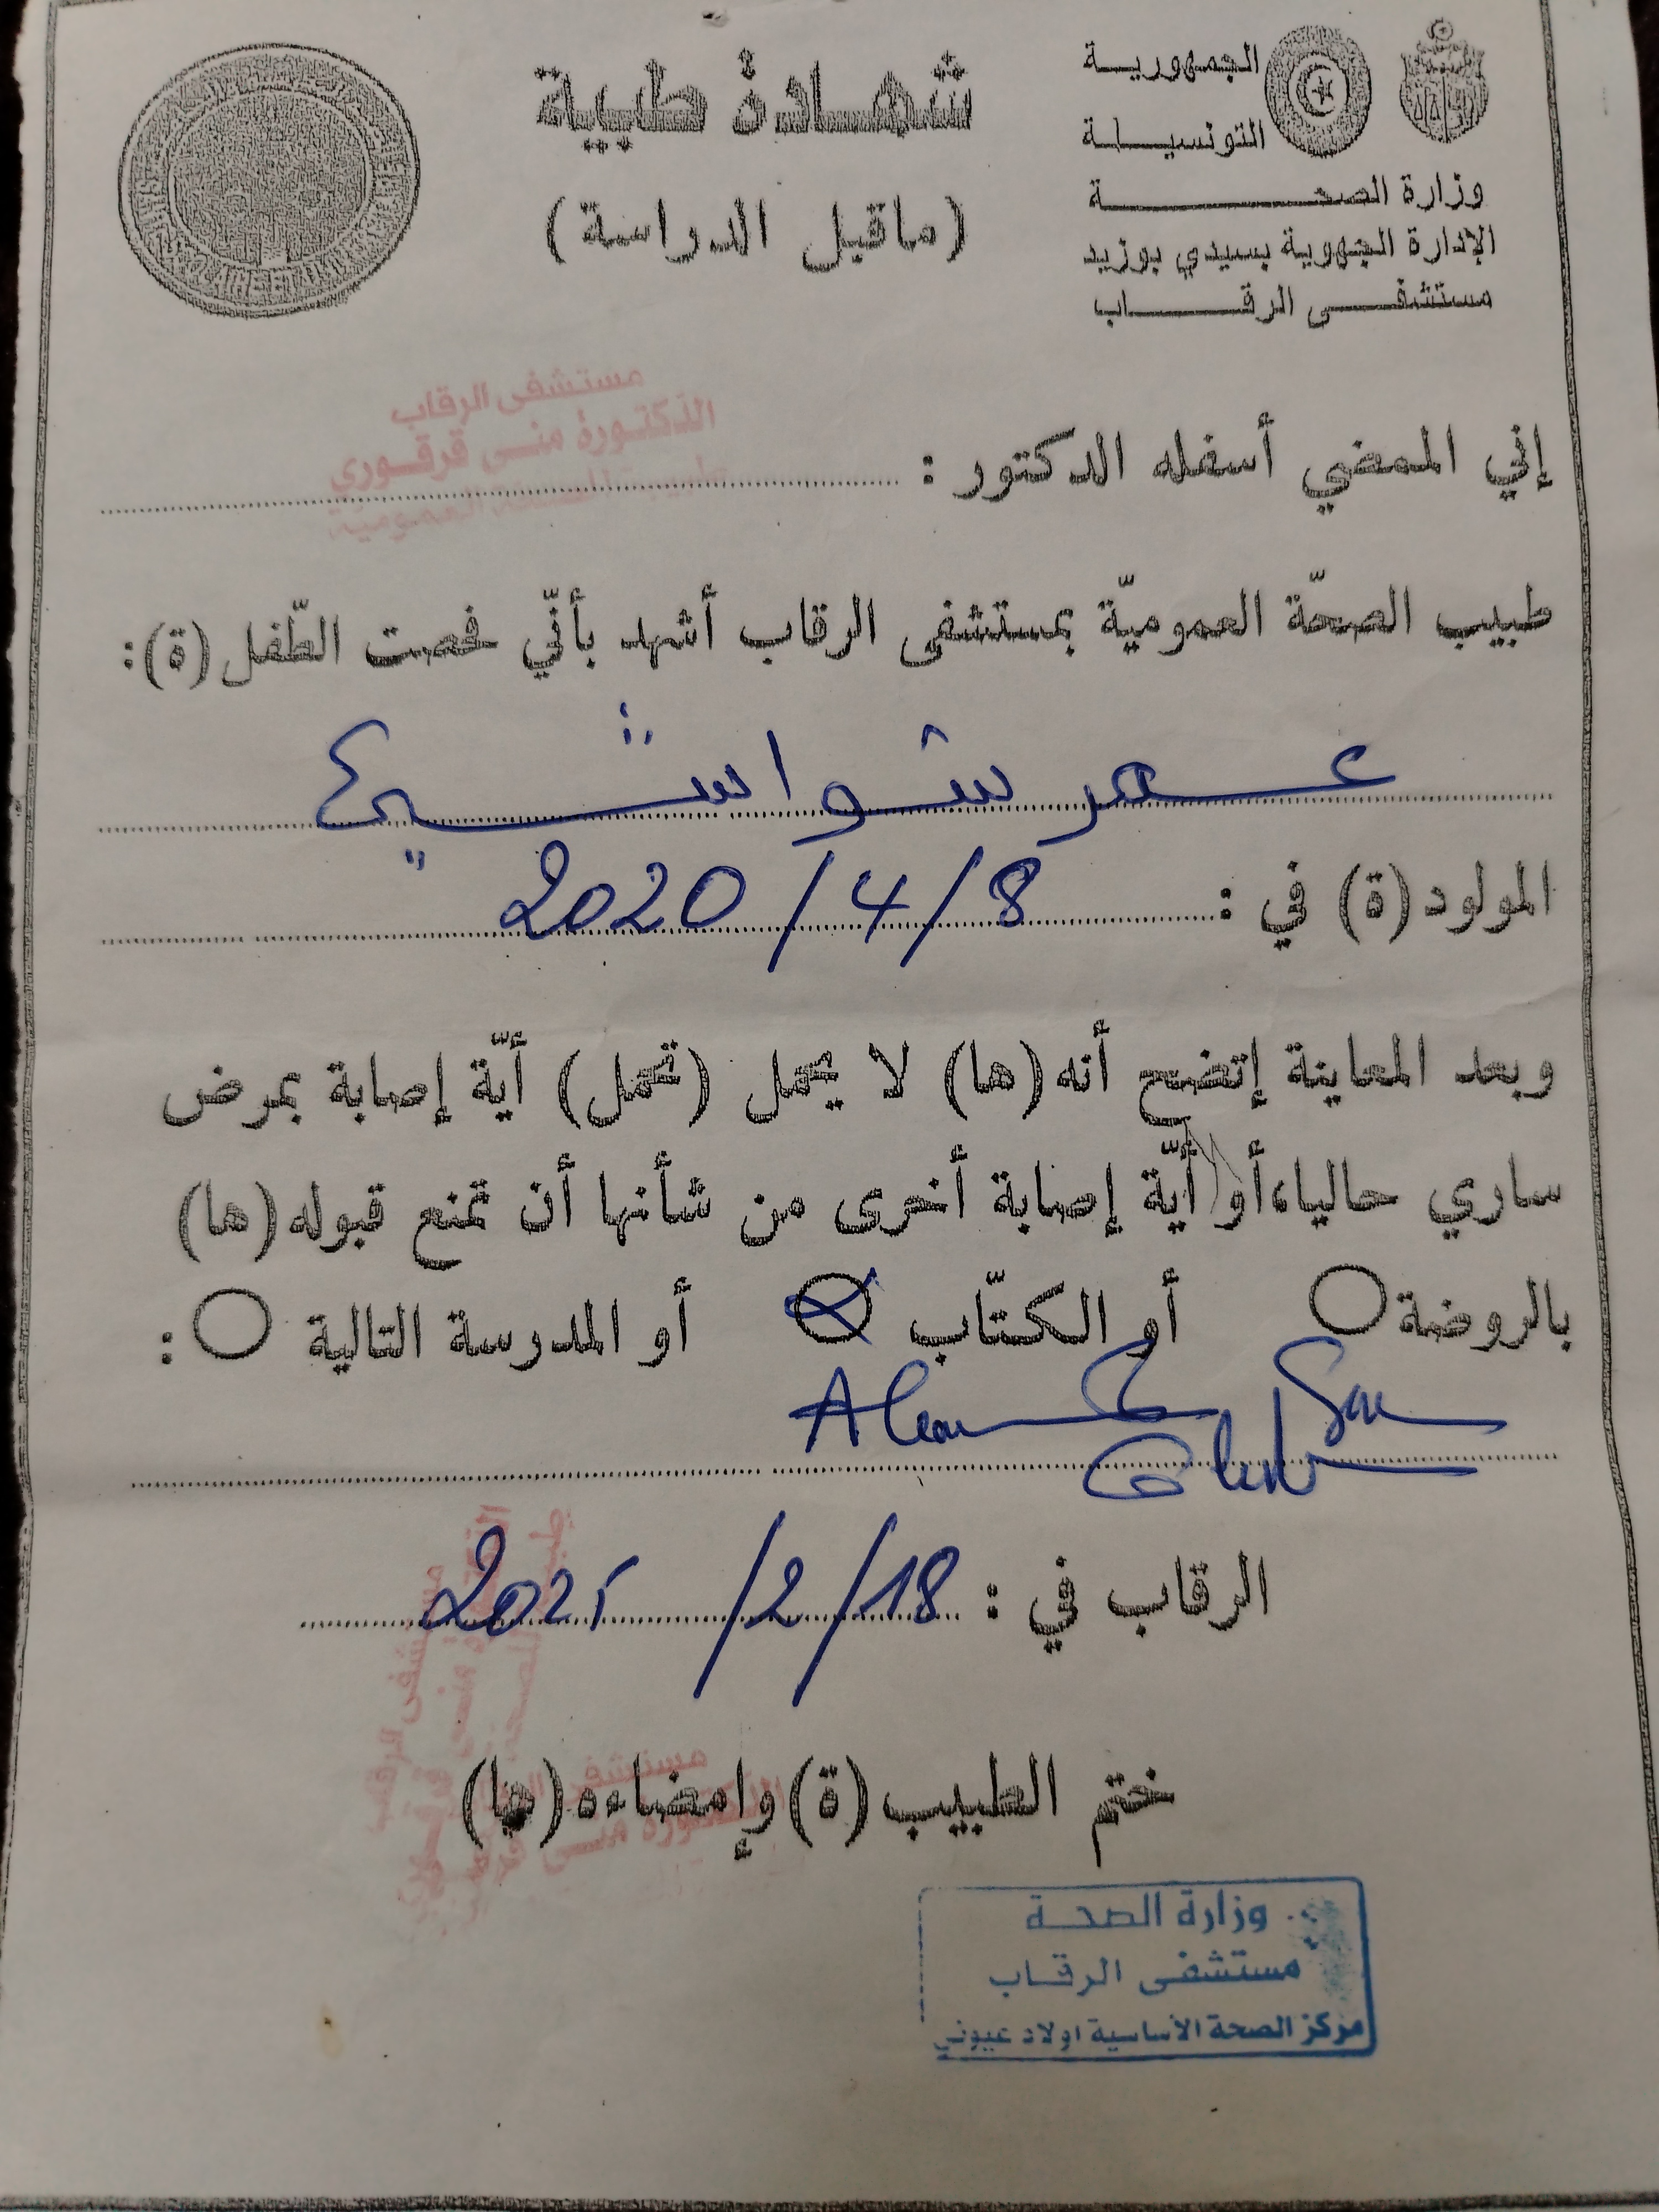 الجمهورية
التونسية
وزارة الصحة
الإدارة الجهوية بسيدي بوزيد
مستشفى الرقاب
شهادة طبية
(ماقبل الدراسة)
مستشفى الرقاب
الدكتورة منى قرقوري
إني الممضي أسفله الدكتور :
طبيب الصحّة العموميّة بمستشفى الرقاب أشهد بأنّي فحصت الطّفل (ة):
عمر شواشي
المولود (ة) في : 2020/4/8
وبعد المعاينة إتضح أنه (ها) لا يحمل (تحمل) أيّة إصابة بمرض
ساري حاليا، أو أيّة إصابة أخرى من شأنها أن تمنع قبوله (ها)
بالروضة أو الكتّاب أو المدرسة التالية :
الرقاب في : 2025/2/18
ختم الطبيب (ة) وإمضاءه (ها)
وزارة الصحة
مستشفى الرقاب
مركز الصحة الأساسية اولاد عيوني